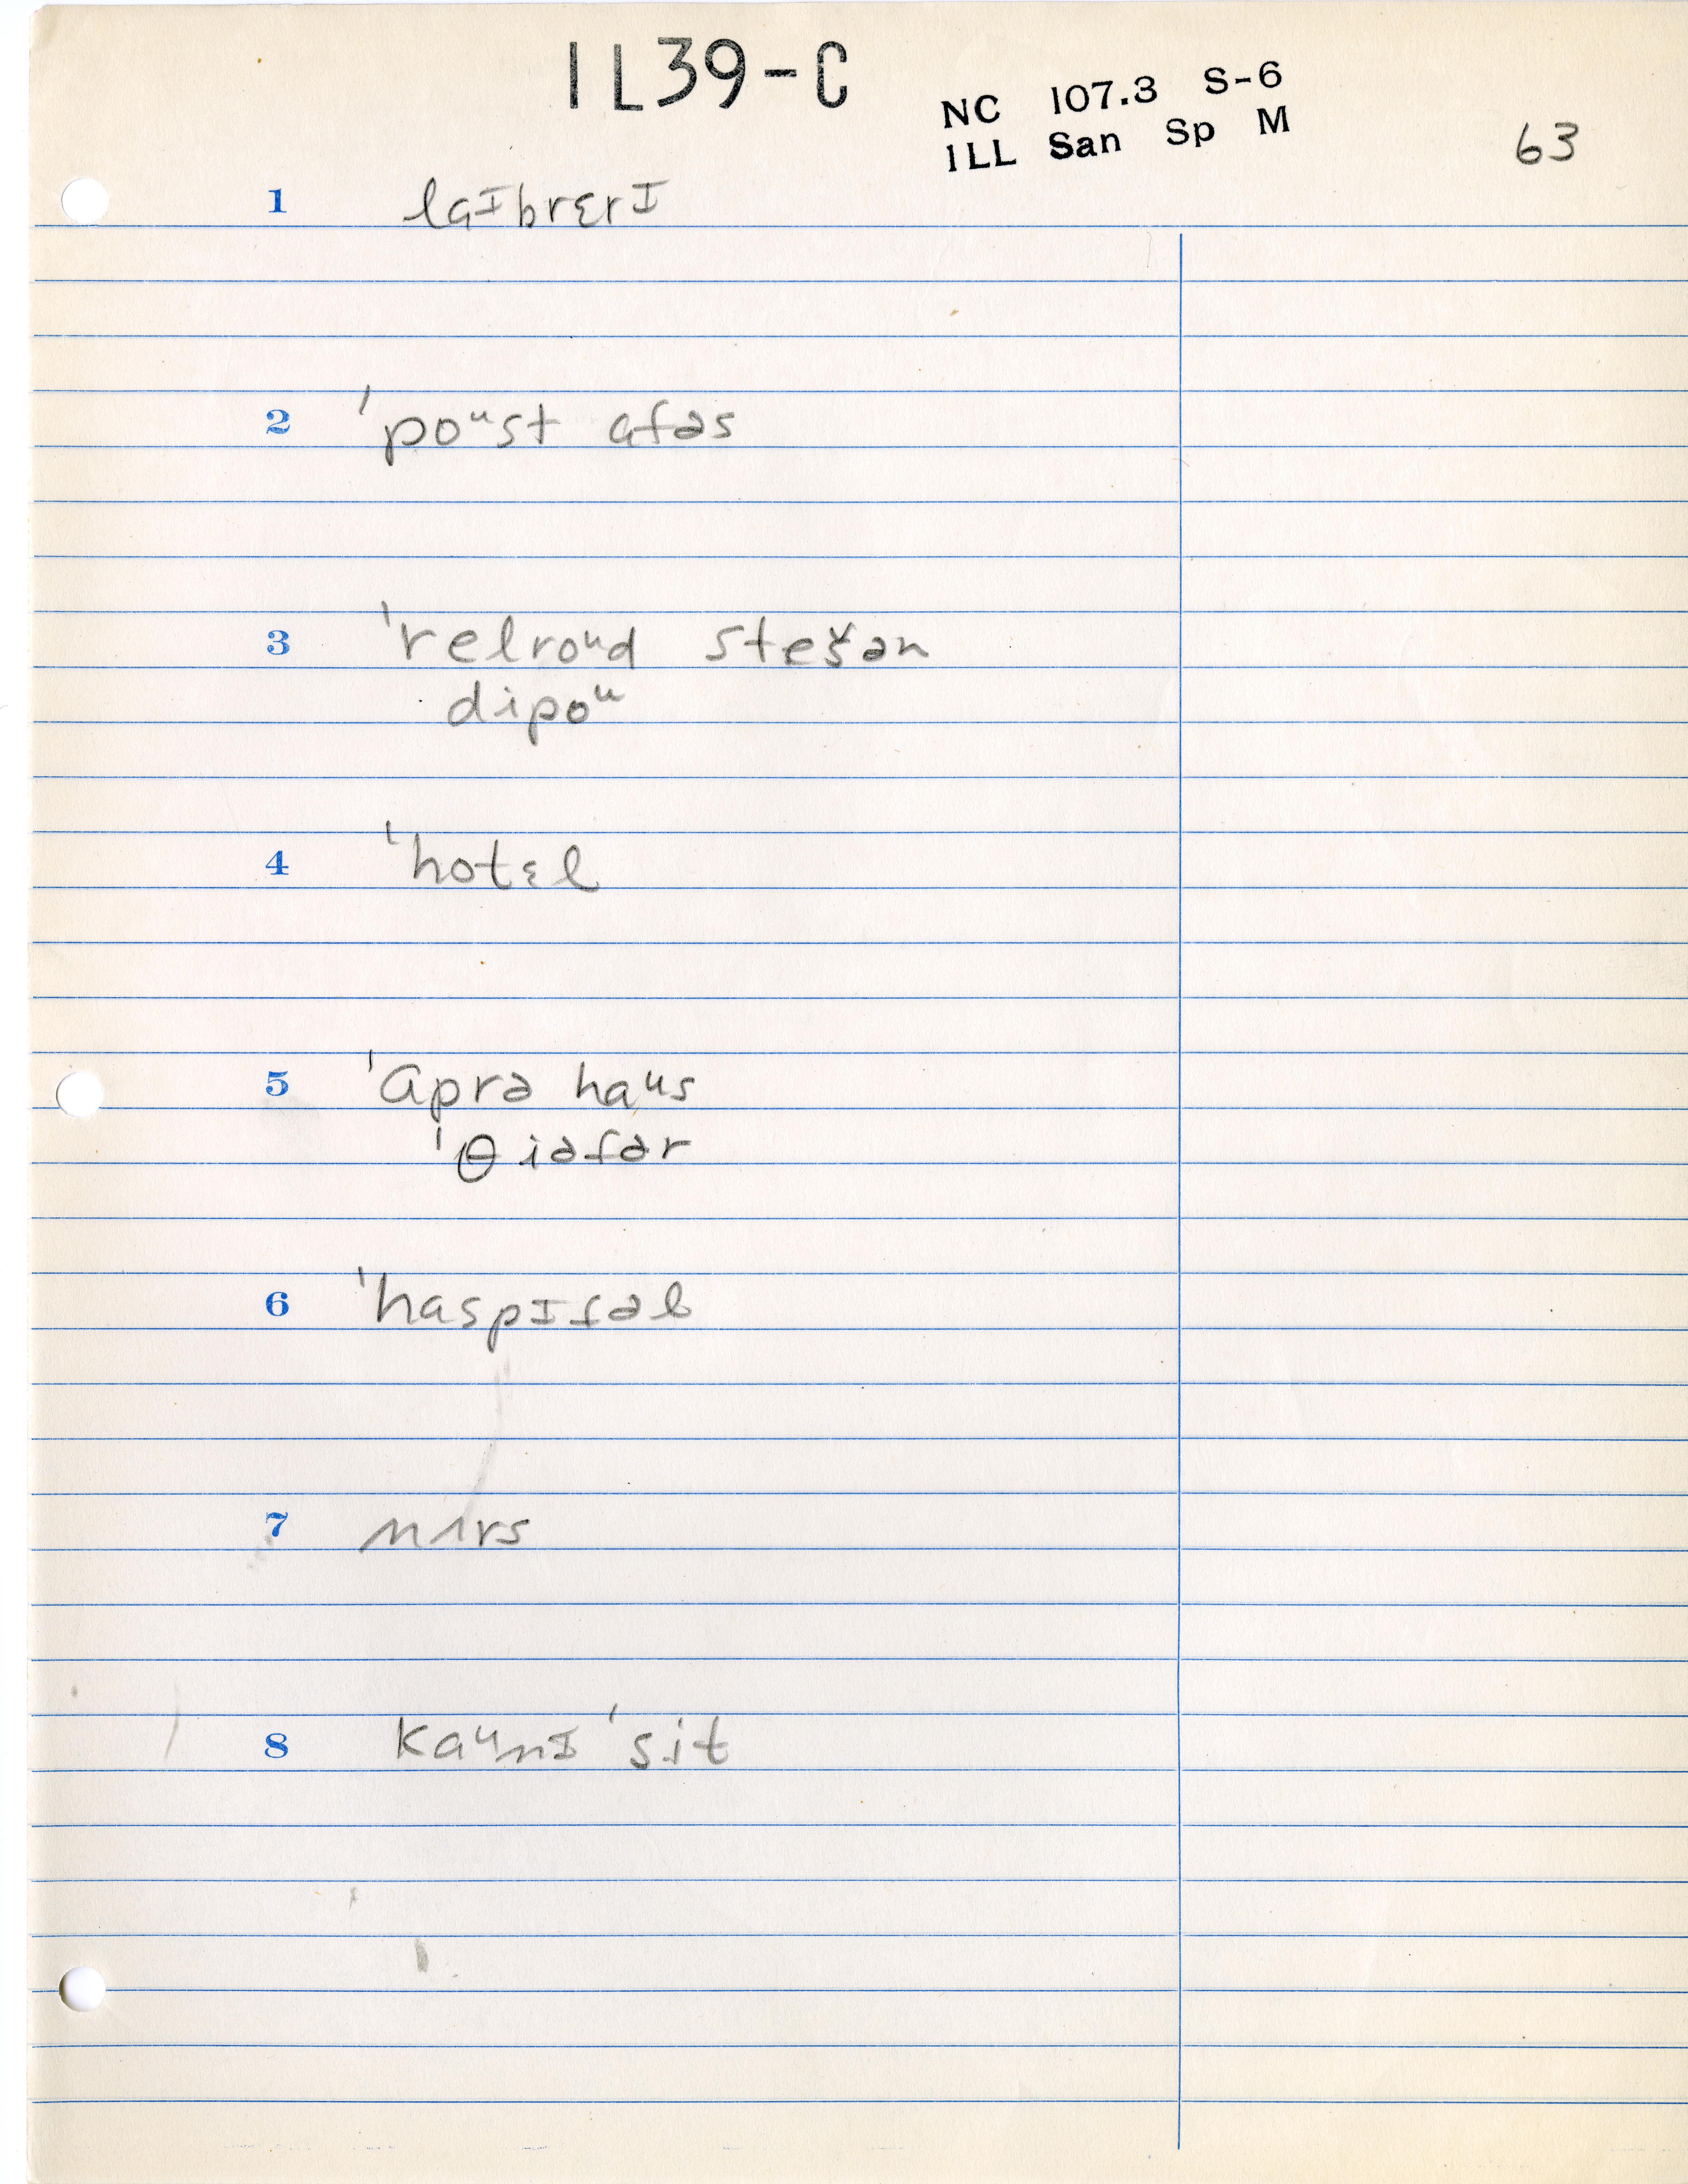 1L39-C
NC 107.3 S-6
ILL San Sp M
63
1 laɪbrɛrɪ
2 ˈpoᵘst ɑfəs
3 ˈrelroᵘd stešən
dipoᵘ
4 ˈhotɛl
5 ˈɑprə haᵘs
ˈθiəfər
6 ˈhɑspɪɾəl
7 nʌrs
8 kaᵘnɪ ˈsit